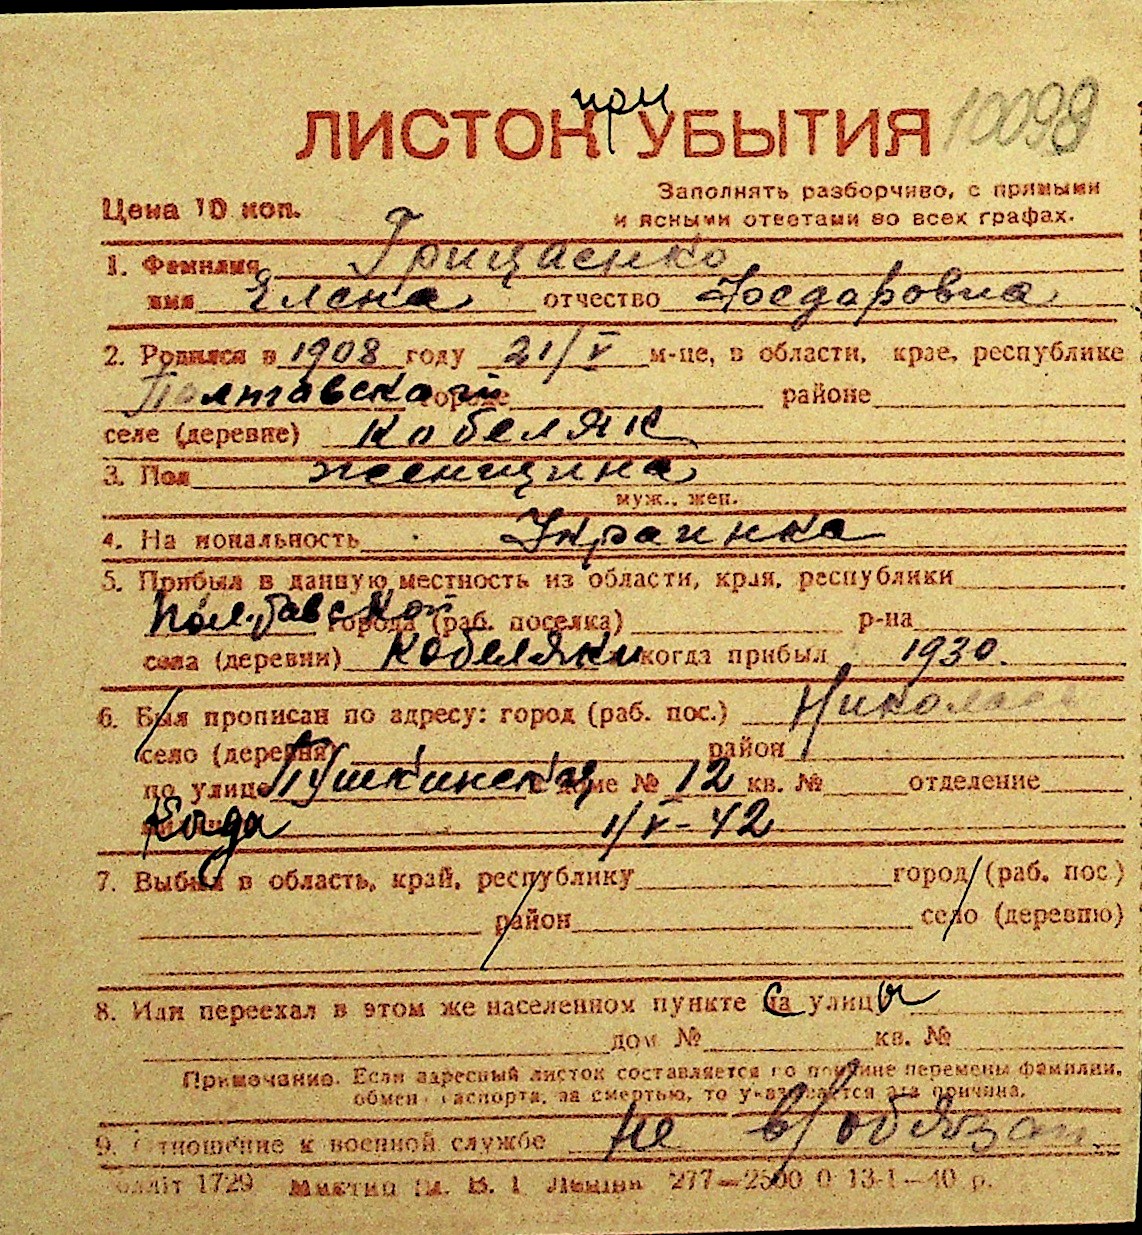 при
ЛИСТОК УБЫТИЯ 10098
Цена 10 коп.
Заполнять разборчиво, с прямыми
и ясными ответами во всех графах.
1. Фамилия Грицаенко
имя Елена отчество Федаровна
2. Родился в 1908 году 21/V м-це, в области, крае, республике
Полтавской городе районе
селе (деревне) Кобеляк
3. Пол женщина
муж., жен.
4. Национальность Украинка
5. Прибыл в данную местность из области, края, республики
Полтавской города (раб. поселка) р-на
села (деревни) Кобеляки когда прибыл 1930.
6. Был прописан по адресу: город (раб. пос.) Николаев
село (деревня) район
по улице Пушкинская в доме № 12 кв. № отделение
Когда 1/V-42
7. Выбыл в область, край, республику город (раб. пос.)
район село (деревню)
8. Или переехал в этом же населенном пункте с улицы
дом № кв. №
Примечание. Если адресный листок составляется по причине перемены фамилии,
обмен паспорта, за смертью, то указывается эта причина.
9. Отношение к военной службе не в/обязан
1729 Ленiна 277—2500 0 13-1-40 р.